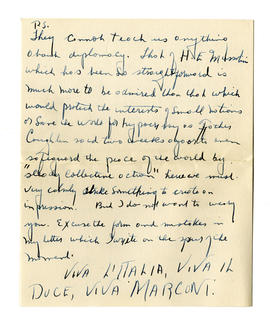 P.S.
They cannot teach us anything
about diplomacy. That of H. E. Mussolini
which has been so straightforward is
much more to be admired than that which
would protect the interests of small nations
or save the world for hypocrisy as Father
Coughlin said two weeks ago
safeguard the peace of the world by
"steady collective action" here we must
very calmly something to create an
impression. But I do not want to weary
you. Excuse the form and mistakes in
my letter which I write on the spur of the
moment.
VIVA L'ITALIA, VIVA IL
DUCE, VIVA MARCONI.